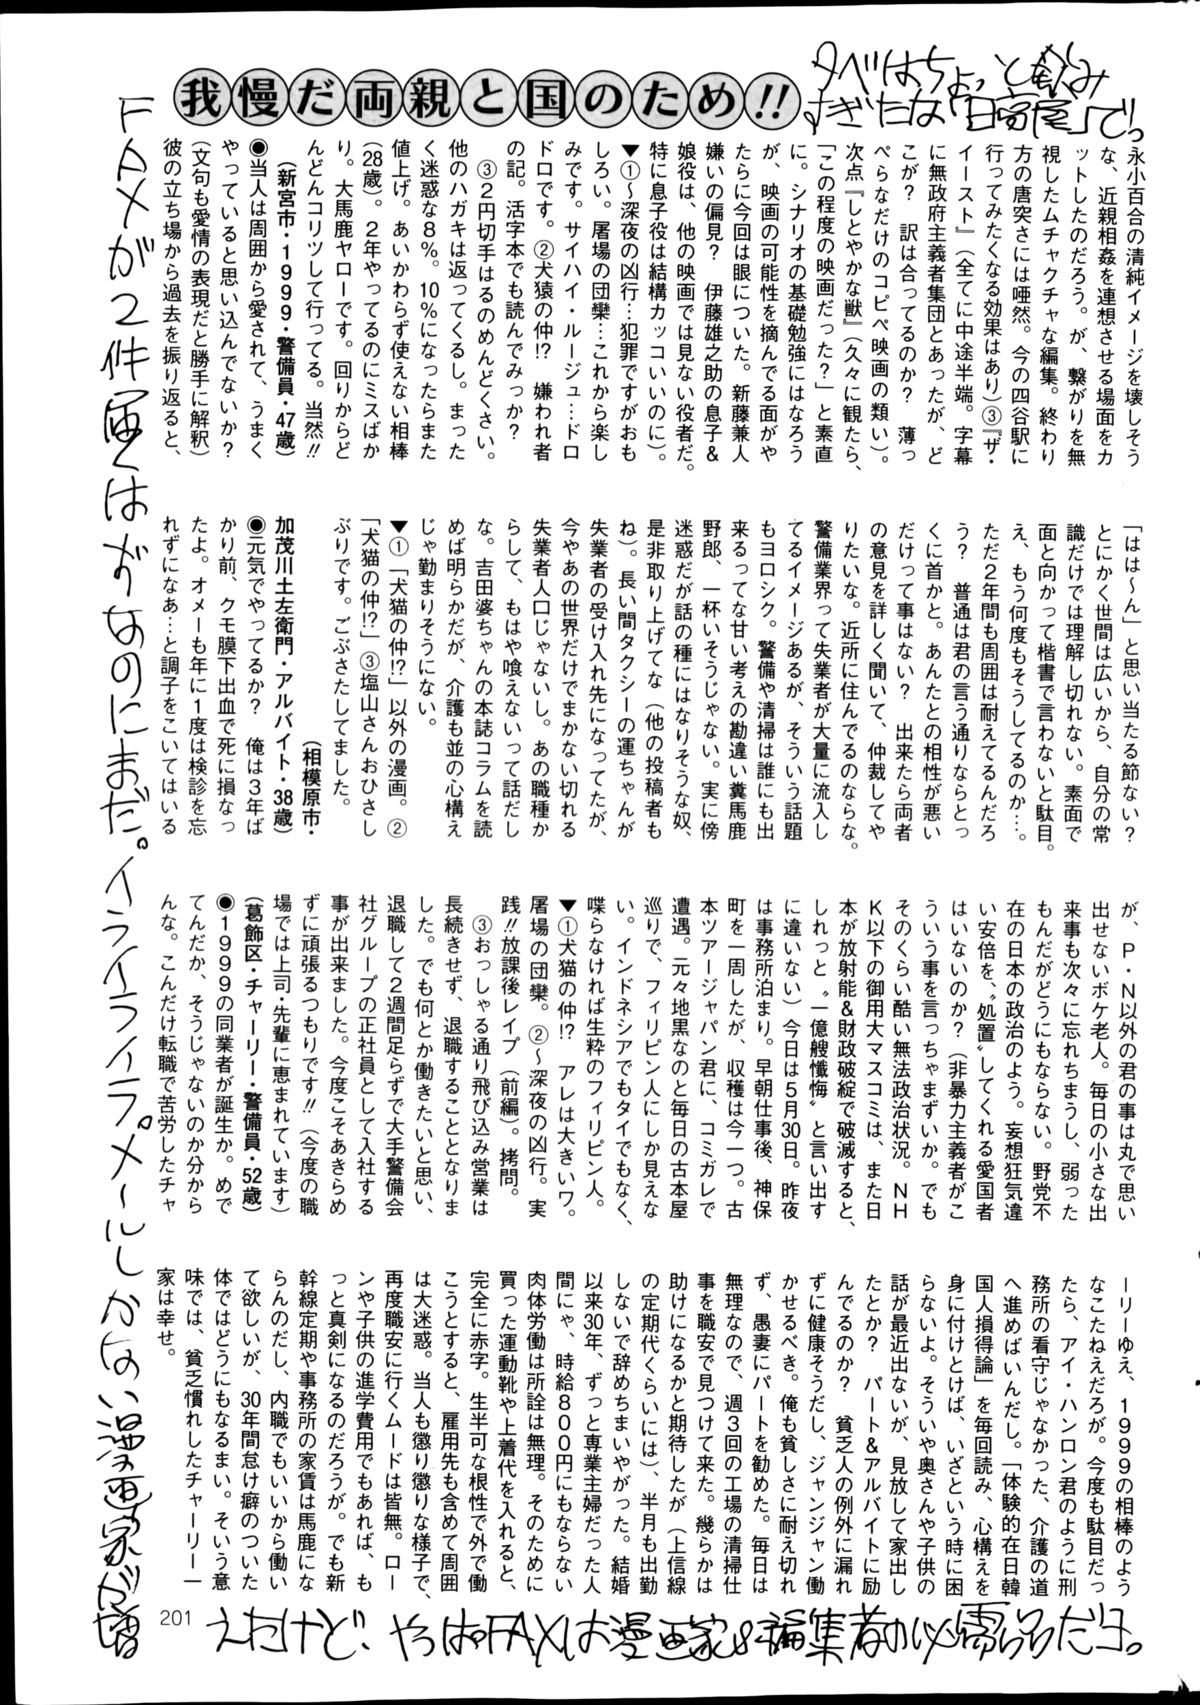 我慢だ両親と国のため!!
夕べはちょっと飲み
すぎたな「日高屋」で。
永小百合の清純イメージを壊しそう
な、近親相姦を連想させる場面をカ
ットしたのだろう。が、繋がりを無
視したムチャクチャな編集。終わり
方の唐突さには唖然。今の四谷駅に
行ってみたくなる効果はあり)③『ザ・
イースト』(全てに中途半端。字幕
に無政府主義者集団とあったが、ど
こが? 訳は合ってるのか? 薄っ
ぺらなだけのコピペ映画の類い)。
次点『しとやかな獣』(久々に観たら、
「この程度の映画だった?」と素直
に。シナリオの基礎勉強にはなろう
が、映画の可能性を摘んでる面がや
たらに今回は眼についた。新藤兼人
嫌いの偏見? 伊藤雄之助の息子&
娘役は、他の映画では見ない役者だ。
特に息子役は結構カッコいいのに)。
▼①〜深夜の凶行…犯罪ですがおも
しろい。屠場の団欒…これから楽し
みです。サイハイ・ルージュ…ドロ
ドロです。②犬猿の仲!? 嫌われ者
の記。活字本でも読んでみっか?
③2円切手はるのめんどくさい。
他のハガキは返ってくるし。まった
く迷惑な8%。10%になったらまた
値上げ。あいかわらず使えない相棒
(28歳)。2年やってるのにミスばか
り。大馬鹿ヤローです。回りからど
んどんコリツして行ってる。当然!!
(新宮市・1999・警備員・47歳)
●当人は周囲から愛されて、うまく
やっていると思い込んでないか?
(文句も愛情の表現だと勝手に解釈)
彼の立ち場から過去を振り返ると、
「はは〜ん」と思い当たる節ない?
とにかく世間は広いから、自分の常
識だけでは理解し切れない。素面で
面と向かって楷書で言わないと駄目。
え、もう何度もそうしてるのか…。
ただ2年間も周囲は耐えてるんだろ
う? 普通は君の言う通りならとっ
くに首かと。あんたとの相性が悪い
だけって事はない? 出来たら両者
の意見を詳しく聞いて、仲裁してや
りたいな。近所に住んでるのならな。
警備業界って失業者が大量に流入し
てるイメージあるが、そういう話題
もヨロシク。警備や清掃は誰にも出
来るってな甘い考えの勘違い糞馬鹿
野郎、一杯いそうじゃない。実に傍
迷惑だが話の種にはなりそうな奴、
是非取り上げてな(他の投稿者も
ね)。長い間タクシーの運ちゃんが
失業者の受け入れ先になってたが、
今やあの世界だけでまかない切れる
失業者人口じゃないし。あの職種か
らして、もはや喰えないって話だし
な。吉田婆ちゃんの本誌コラムを読
めば明らかだが、介護も並の心構え
じゃ勤まりそうにない。
▼①「犬猫の仲!?」以外の漫画。②
「犬猫の仲!?」③塩山さんおひさし
ぶりです。ごぶさたしてました。
(相模原市・
加茂川土左衛門・アルバイト・38歳)
●元気でやってるか? 俺は3年ば
かり前、クモ膜下出血で死に損なっ
たよ。オメーも年に1度は検診を忘
れずになあ…と調子をこいてはいる
が、P・N以外の君の事は丸で思い
出せないボケ老人。毎日の小さな出
来事も次々に忘れちまうし、弱った
もんだがどうにもならない。野党不
在の日本の政治のよう。妄想狂気違
い安倍を、〝処置〟してくれる愛国者
はいないのか?(非暴力主義者がこ
ういう事を言っちゃまずいか。でも
そのくらい酷い無法政治状況。NH
K以下の御用大マスコミは、また日
本が放射能&財政破綻で破滅すると、
しれっと〝一億艘懺悔〟と言い出す
に違いない)今日は5月30日。昨夜
は事務所泊まり。早朝仕事後、神保
町を一周したが、収穫は今一つ。古
本ツアージャパン君に、コミガレで
遭遇。元々地黒なのと毎日の古本屋
巡りで、フィリピン人にしか見えな
い。インドネシアでもタイでもなく、
喋らなければ生粋のフィリピン人。
▼①犬猫の仲!? アレは大きいワ。
屠場の団欒。②〜深夜の凶行。実
践!!放課後レイプ(前編)。拷問。
③おっしゃる通り飛び込み営業は
長続きせず、退職することとなりま
した。でも何とか働きたいと思い、
退職して2週間足らずで大手警備会
社グループの正社員として入社する
事が出来ました。今度こそあきらめ
ずに頑張るつもりです!!(今度の職
場では上司・先輩に恵まれています)
(葛飾区・チャーリー・警備員・52歳)
●1999の同業者が誕生か。めで
てんだか、そうじゃないのか分から
んな。こんだけ転職で苦労したチャ
ーリーゆえ、1999の相棒のよう
なこたねえだろが。今度も駄目だっ
たら、アイ・ハンロン君のように刑
務所の看守じゃなかった、介護の道
へ進めばいんだし。「体験的在日韓
国人損得論」を毎回読み、心構えを
身に付けとけば、いざという時に困
らないよ。そういや奥さんや子供の
話が最近出ないが、見放して家出し
たとか? パート&アルバイトに励
んでるのか? 貧乏人の例外に漏れ
ずに健康そうだし、ジャンジャン働
かせるべき。俺も貧しさに耐え切れ
ず、愚妻にパートを勧めた。毎日は
無理なので、週3回の工場の清掃仕
事を職安で見つけて来た。幾らかは
助けになるかと期待したが(上信線
の定期代くらいには)、半月も出勤
しないで辞めちまいやがった。結婚
以来30年、ずっと専業主婦だった人
間にゃ、時給800円にもならない
肉体労働は所詮は無理。そのために
買った運動靴や上着代を入れると、
完全に赤字。生半可な根性で外で働
こうとすると、雇用先も含めて周囲
は大迷惑。当人も懲り懲りな様子で、
再度職安に行くムードは皆無。ロー
ンや子供の進学費用でもあれば、も
っと真剣になるのだろうが。でも新
幹線定期や事務所の家賃は馬鹿にな
らんのだし、内職でもいいから働い
て欲しいが、30年間怠け癖のついた
体ではどうにもなるまい。そういう意
味では、貧乏慣れしたチャーリー一
家は幸せ。
FAXが2件届くはずなのにまだ。イライライラ。メールしかない漫画家が増
えたけど、やっぱFAXは漫画家&編集者の必需品だヨ。
201